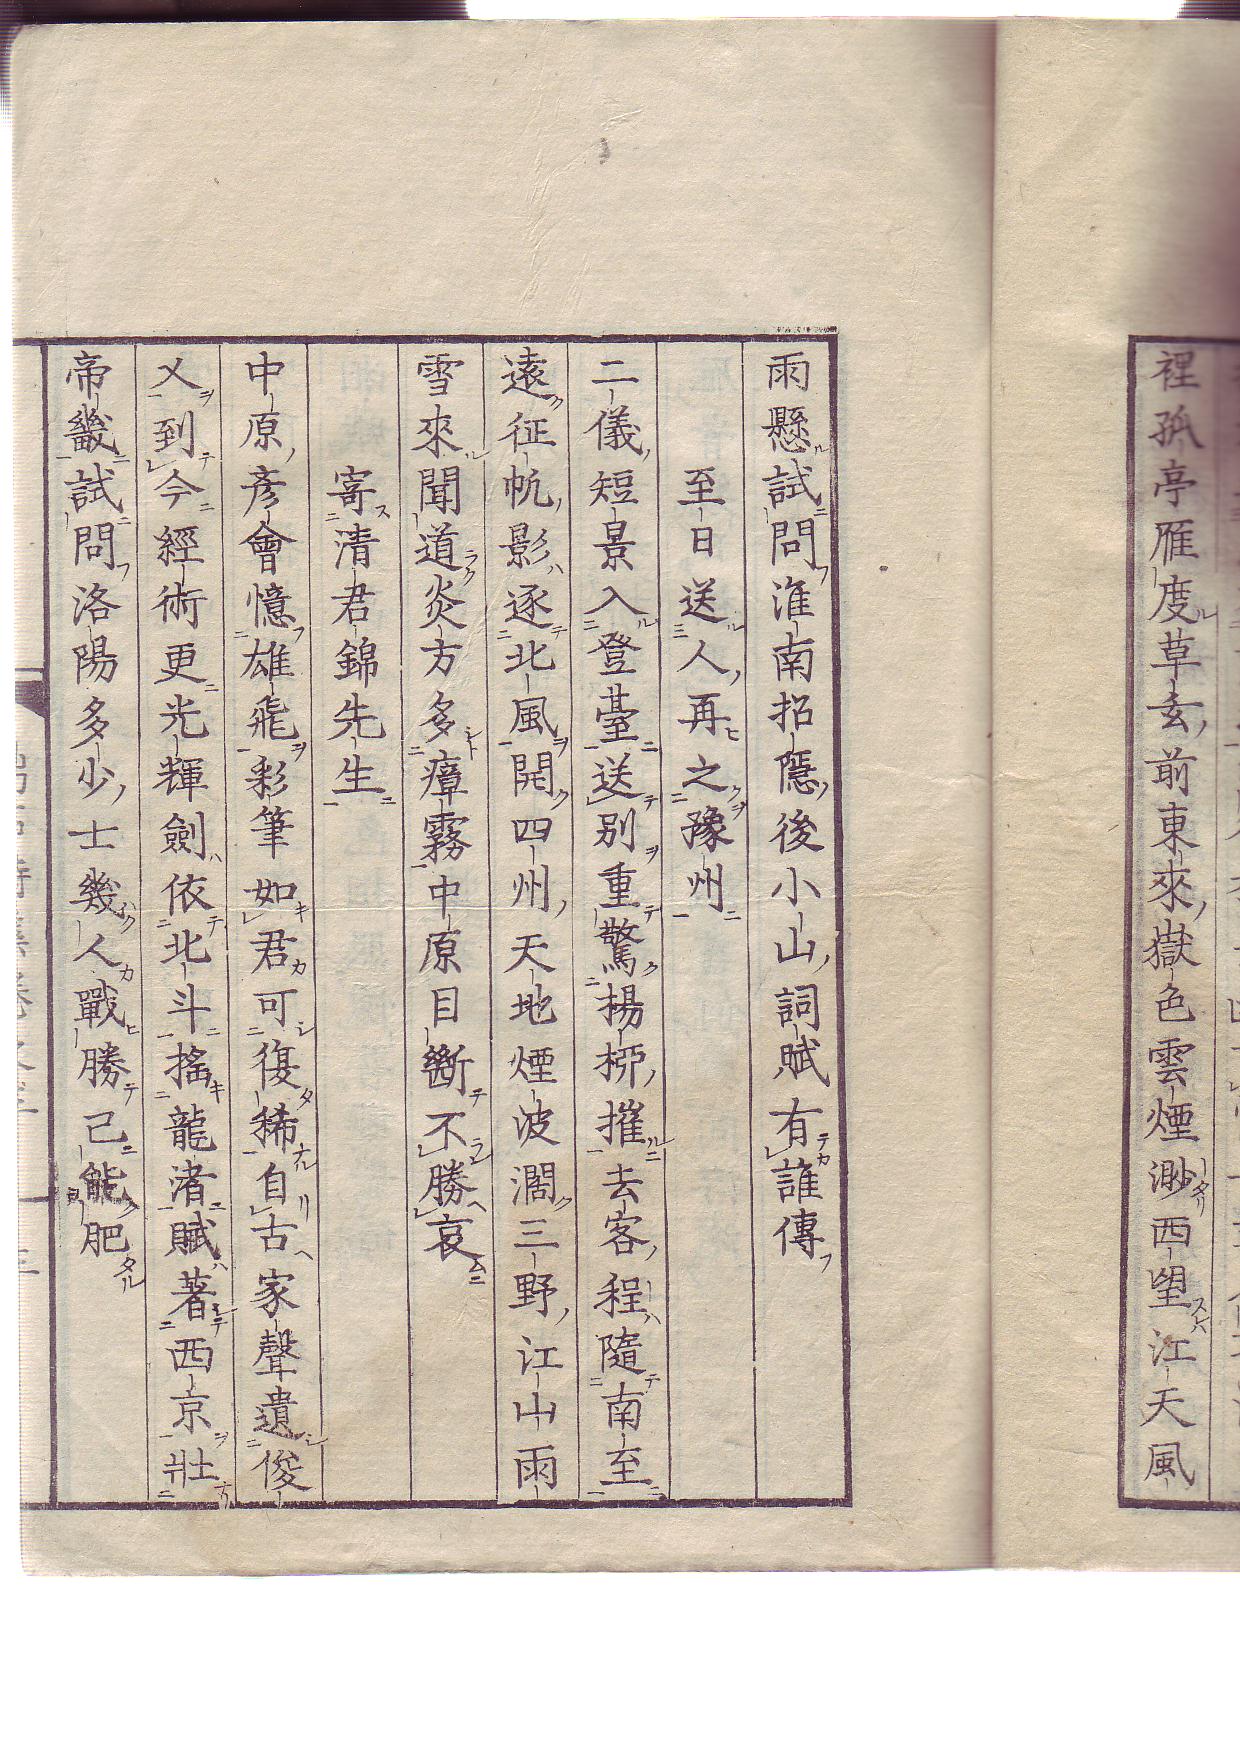 裡孤亭雁度草玄前東來嶽色雲煙渺西望江天風
雨懸試問淮南招隱後小山詞賦有誰傳
至日送人再之豫州
二儀短景入登臺送別重驚楊柳摧去客程隨南至
遠征帆影逐北風開四州天地煙波濶三野江山雨
雪來聞道炎方多瘴霧中原目斷不勝哀
寄清君錦先生
中原彥會憶雄飛彩筆如君可復稀自古家聲遺俊
乂到今經術更光輝劍依北斗搖龍渚賦著西京壯
帝畿試問洛陽多少士幾人戰勝已能肥